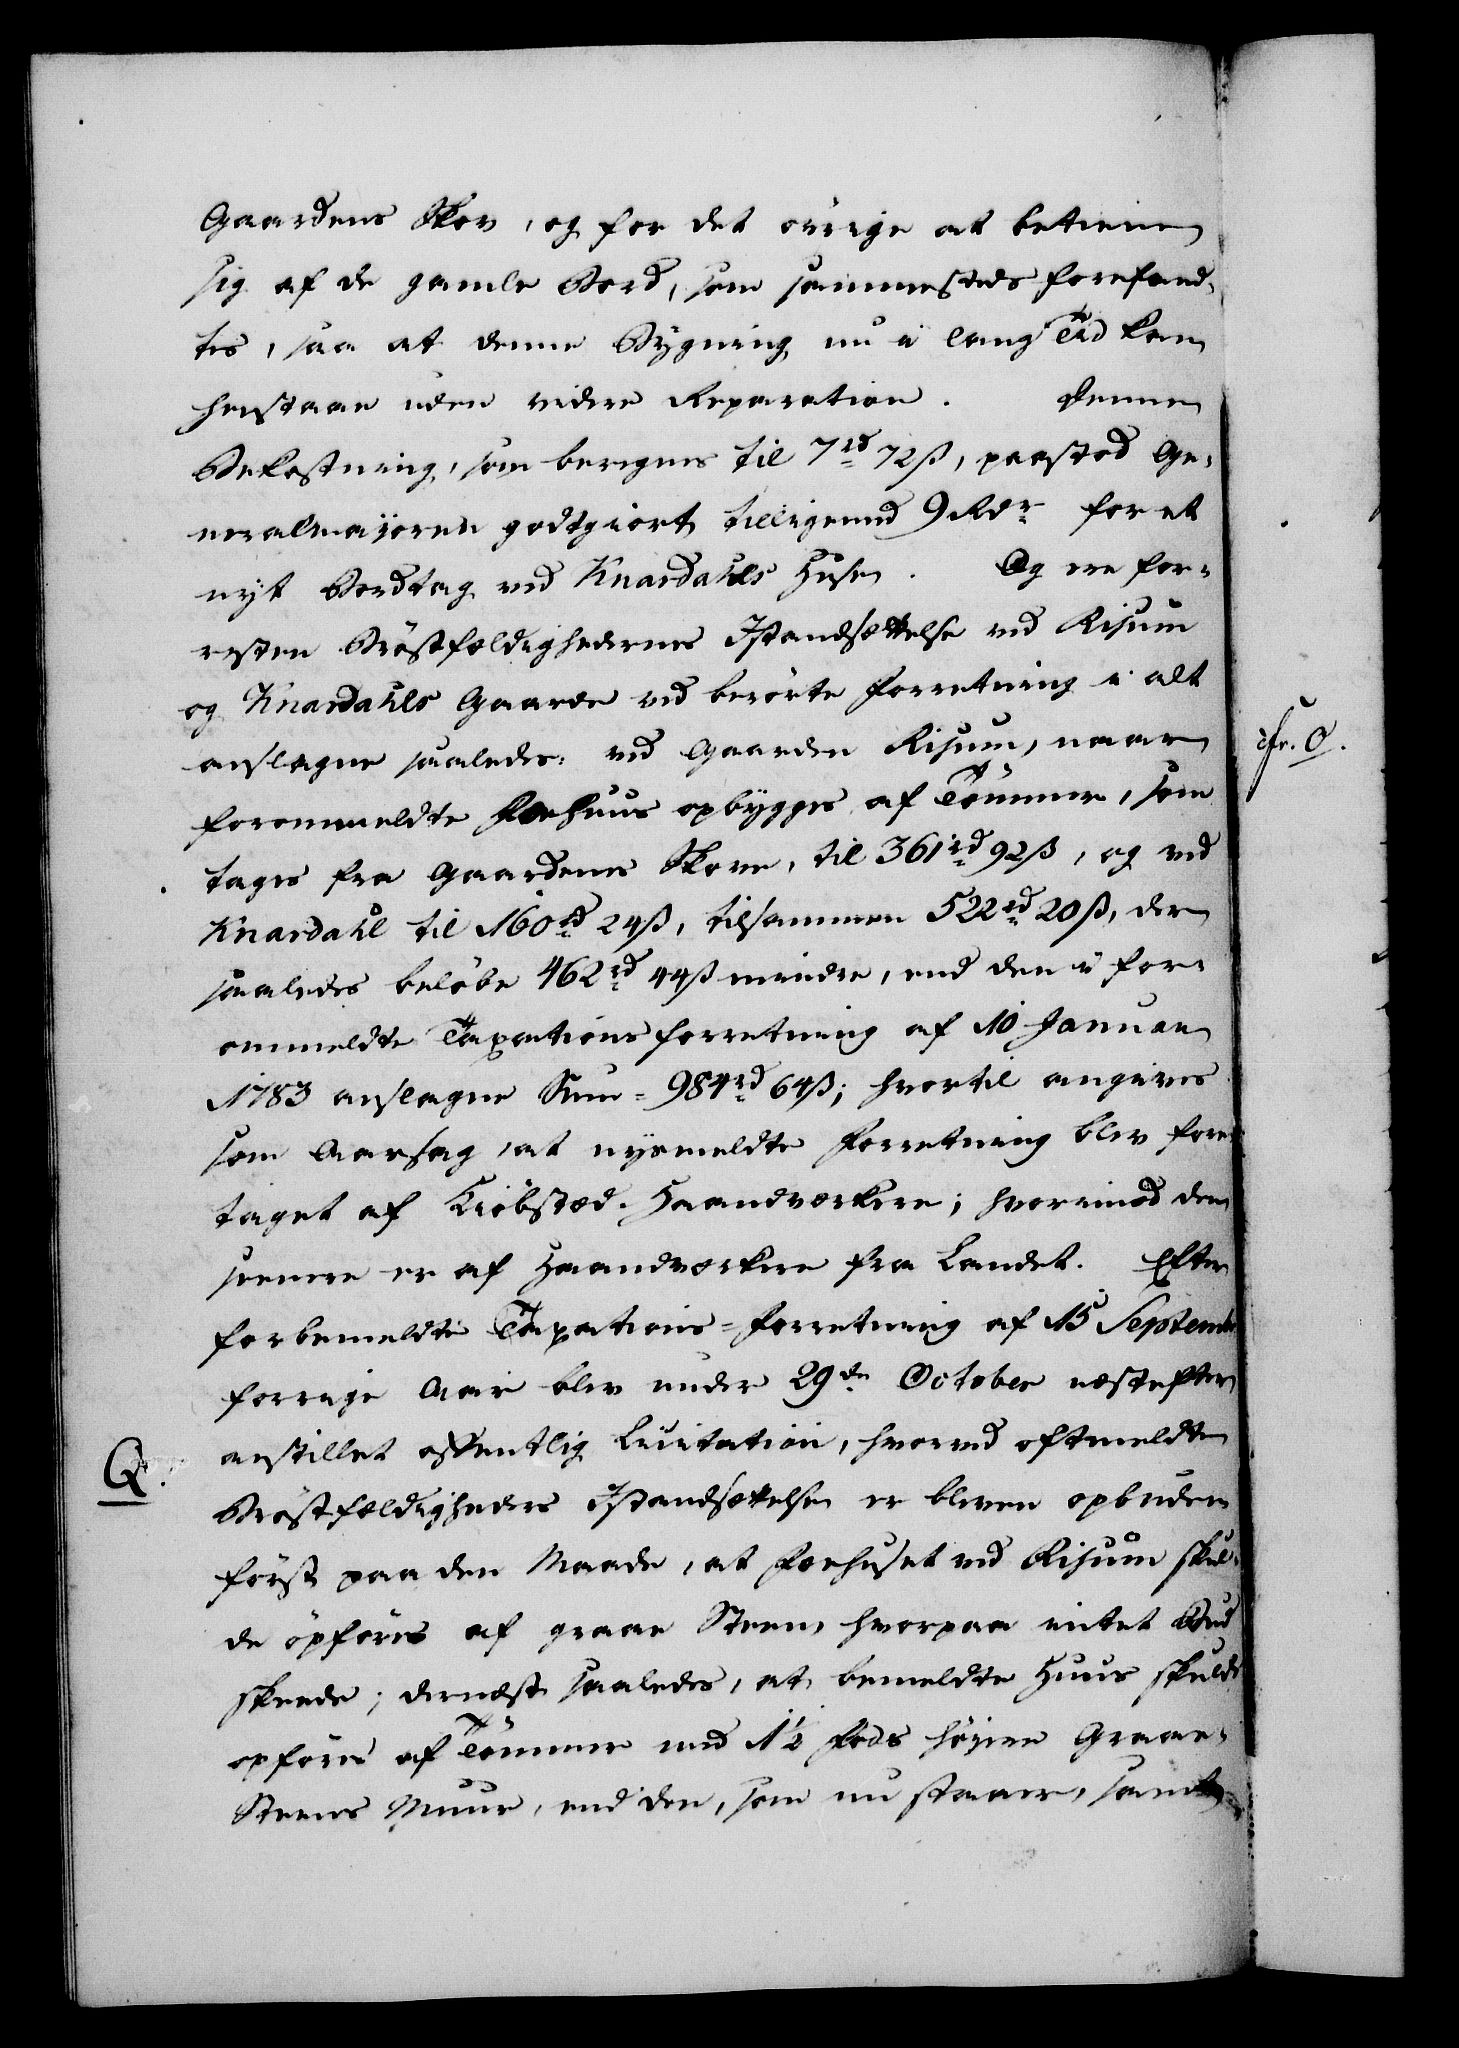 Gaardens Skov, og for det övrige at betiene
sig af de gamle Bord, som sammesteds forefand-
tes, saa at denne Bygning nu i lang Tid kan
henstaae uden videre Reparation. Denne
Bekostning, som beregnes til 7 rd 72 ß, paastod Ge-
neralmajoren godtgiort tilligemed 9 Rdr for et
nyt Bordtag ved Knardahls Huse. Og ere for-
resten Bröstfældighedernes Istandsættelse ved Risum
og Knardahls Gaarde ved berörte Forretning i alt
anslagne saaledes: ved Gaarden Risum, naar
forommeldte Fæehuus opbygges af Tömmer, som
tages fra Gaardenes Skove, til 361 rd 92 ß, og ved
Knardahl til 160 rd 24 ß, tilsammen 522 rd 20 ß, der
saaledes belöbe 462 rd 44 ß mindre, end den i for-
ommeldte Taxationsforretning af 10 Januar
1783 anslagne Sum = 984 rd 64 ß; hvortil angives
som Aarsag, at nysmeldte Forretning blev fore-
taget af Kiöbstæd-Haandværkere; hvorimod den
seenere er af Haandværkere fra Landet. Efter
forbemeldte Taxations-Forretning af 15 September
forrige Aar blev under 29de October næstefter
anstillet offentlig Licitation, hvorved oftmeldte
Bröstfældigheders Istandsættelse er bleven opbuden
först paa den Maade, at Fæehuset ved Risum skul-
de opföres af graae Steen, hvorpaa intet Bud
skeede; dernæst saaledes, at bemeldte Huus skulde
opföres af Tömmer med 1½ Fods höyere Graae-
Steens Muur, end den, som nu staaer, samt
Q.
cfr. O.